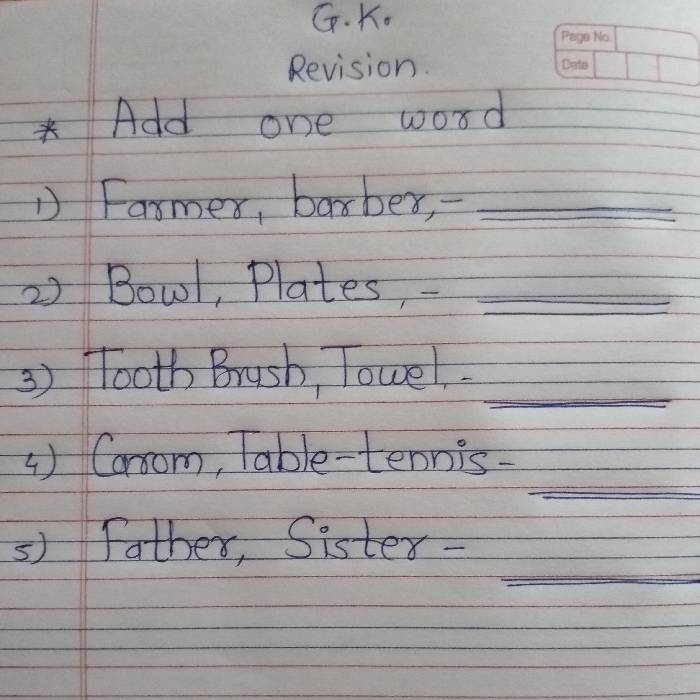 G.K.
Page No.
Revision.
Date
* Add one word
1) Farmer, barber,-
2) Bowl, Plates,-
3) Tooth Brush, Towel,-
4) Carrom, Table-tennis-
5) Father, Sister-